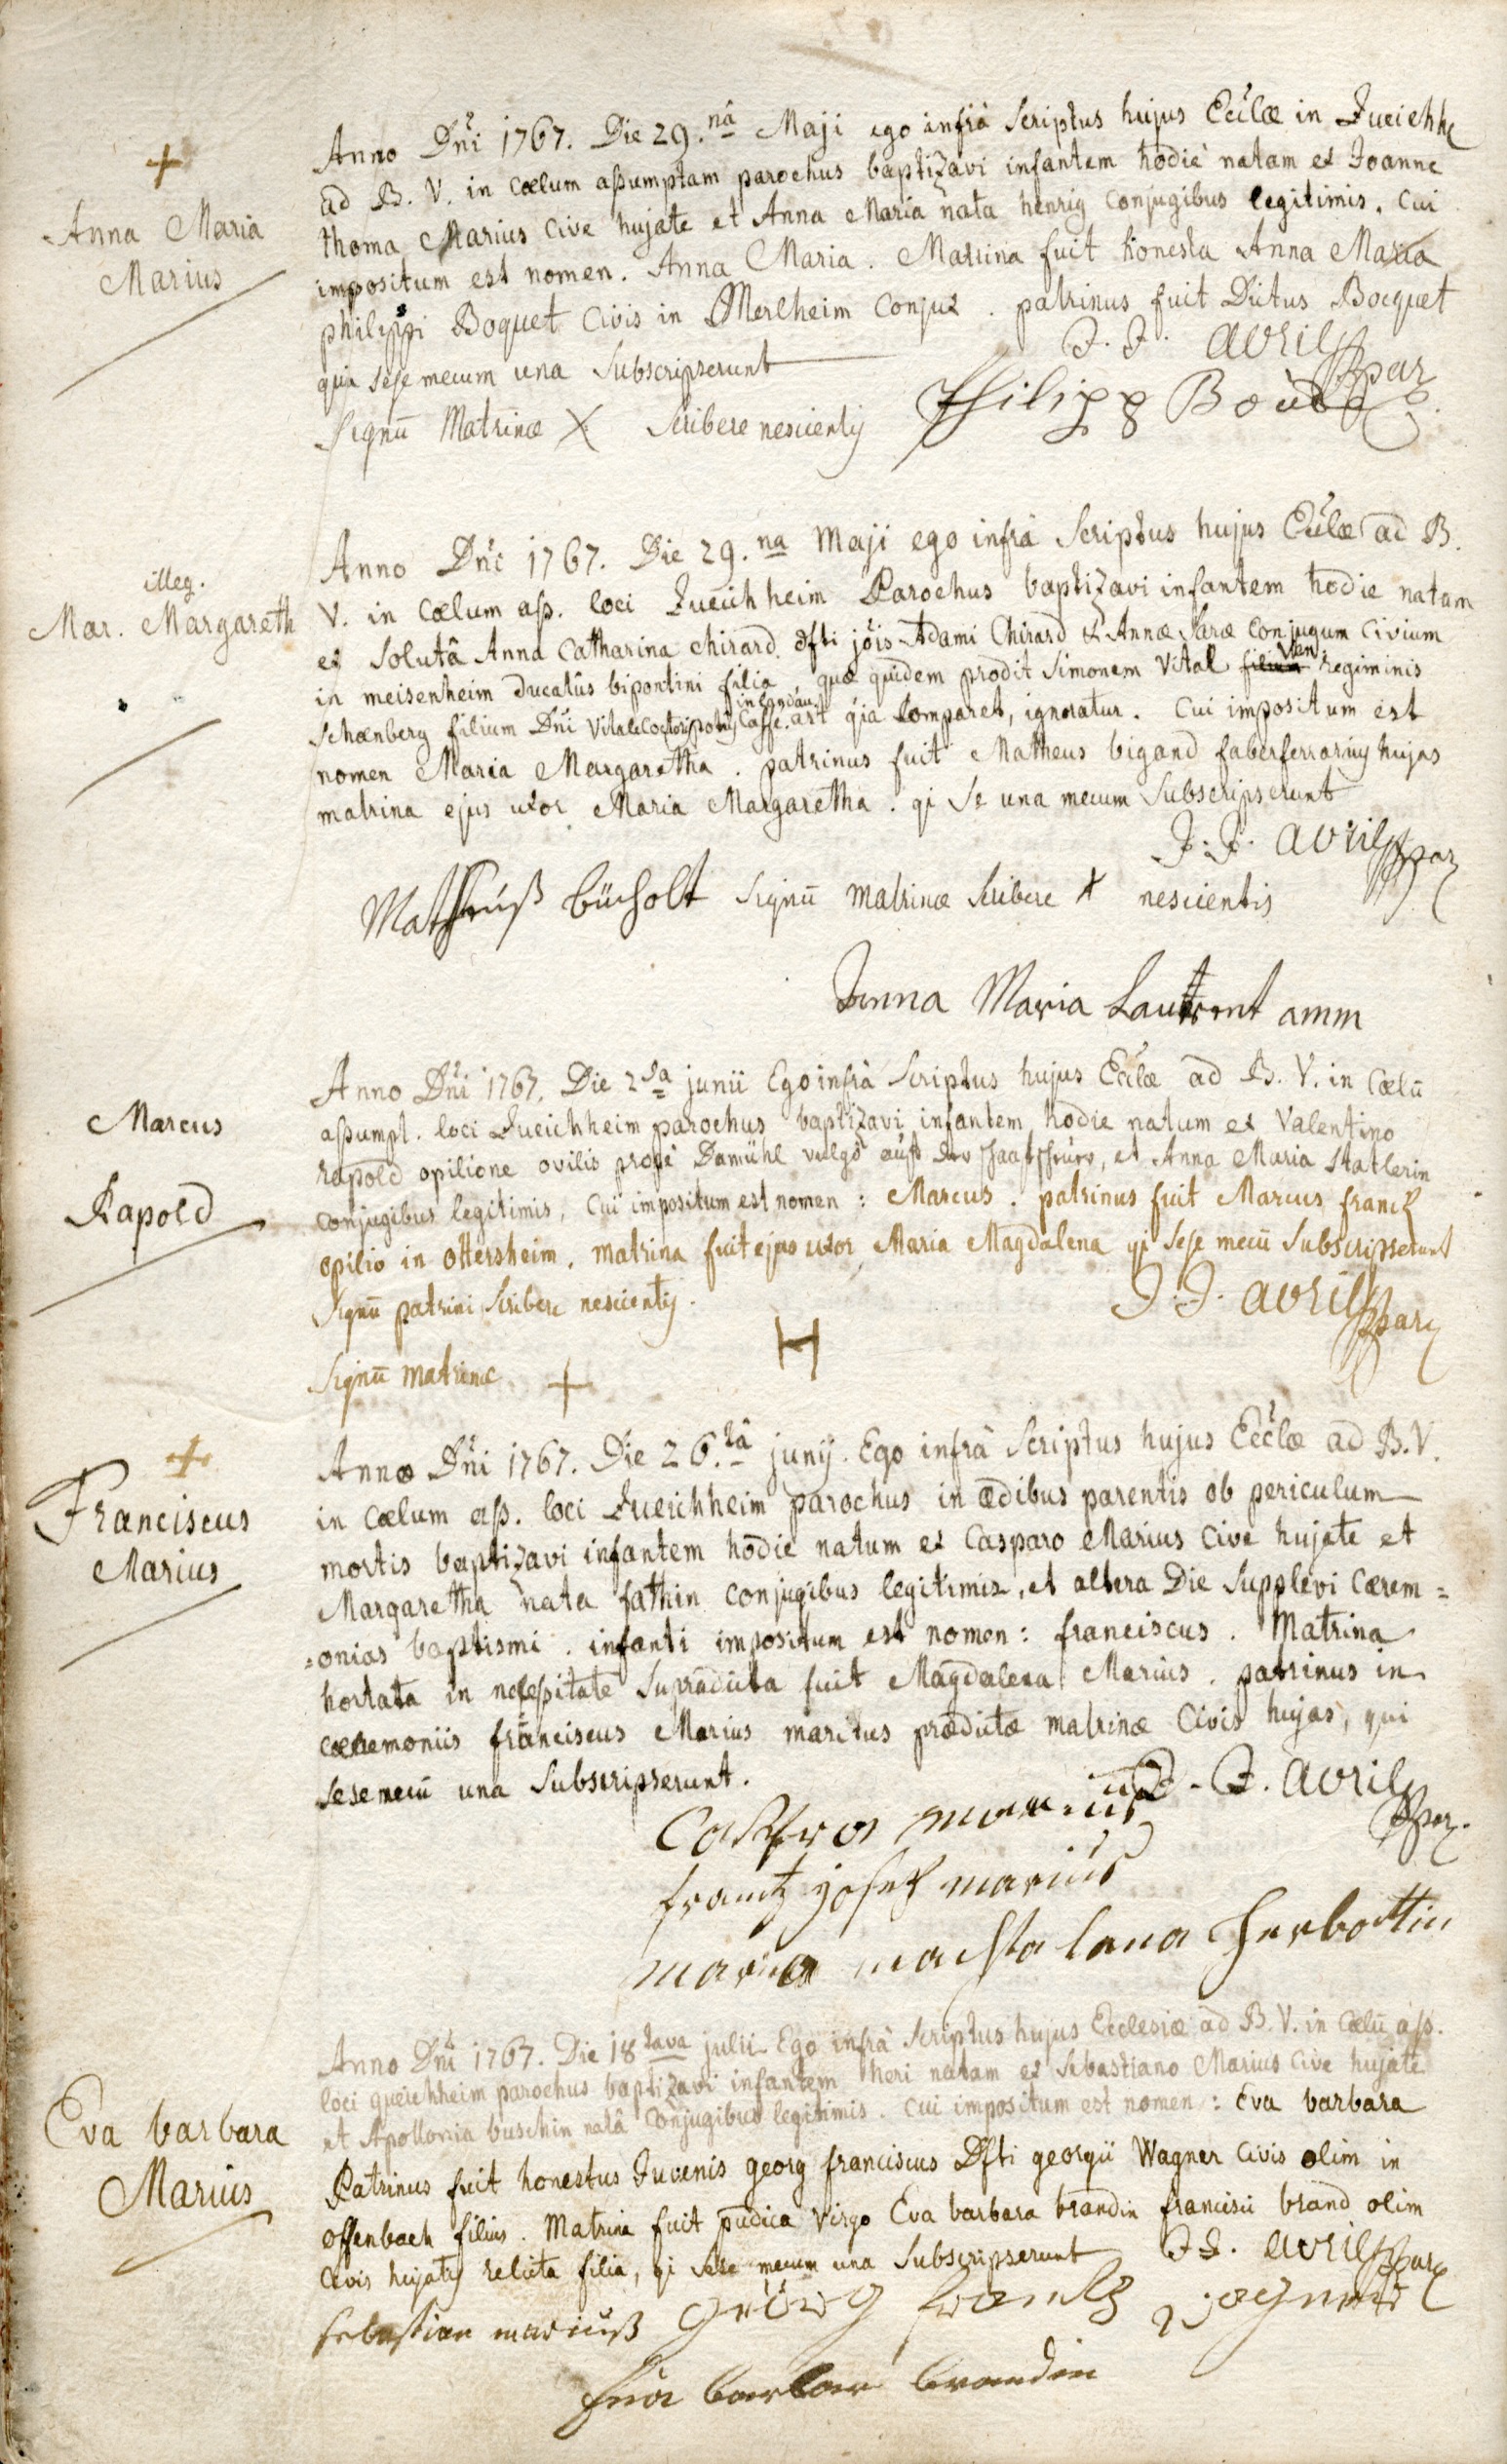 Anna Maria
Marius
Anno Dñi 1767. Die 29.nâ Maji ego infrà scriptus hujus Ecclæ in Queichh
ad B. V. in cœlum assumptam parochus baptizavi infantem hodiè natam ex Joanne
thoma Marius cive hujate et Anna Maria nata henrig conjugibus legitimis. cui
impositum est nomen. Anna Maria. Matrina fuit honesta Anna Maria
philippi Boquet civis in Merlheim conjux. patrinus fuit Dictus Bocquet
qui sese mecum una subscripserunt
J. J. avril par
Signū Matrinæ X scribere nescientis
Philipp
illeg.
Mar. Margareth
Anno Dñi 1767. Die 29.na Maji ego infrà scriptus hujus Ecclæ ad B.
V. in cœlum ass. loci Queichheim Parochus baptizavi infantem hodie natam
ex solutâ Anna Catharina chirard. dfti jöis Adami Chirard & Annæ Saræ conjugum civium
in meisenheim ducatûs bipontini filia quæ quidem prodit Simonem Vital regiminis
schænberg filium Dñi Vitale in Landau. ast q̃ia comparet, ignoratur. Cui impositum est
nomen Maria Margaretha. patrinus fuit Matheus bigand faber ferrarius hujas
matrina ejus uxor Maria Margaretha. qi se una mecum subscripserunt
J. J. avril par
Matheuß büholt signū matrinæ scribere + nescientis
Anna Maria Lautrent amm
Marcus
Rapold
Anno Dñi 1767. Die 2da junii Ego infrà scriptus hujus Ecclæ ad B. V. in Cœlū
assumpt. loci Queichheim parochus baptizavi infantem hodie natum ex Valentino
rapold opilione ovilis propè Damühl vulgò auf der, et Anna Maria Statlerin
conjugibus legitimis, cui impositum est nomen: Marcus. patrinus fuit Marcus franck
opilio in ottersheim. matrina fuit ejus uxor Maria Magdalena qi sese mecū subscripserunt
Signū patrini scribere nescientis. H
J. J. avril par
Signū matrinæ +
Franciscus
Marius
Anno Dñi 1767. Die 26.tâ junij. Ego infrà scriptus hujus Ecclæ ad B. V.
in Cœlum ass. loci Queichheim parochus in ædibus parentis ob periculum
mortis baptizavi infantem hodie natum ex Casparo Marius cive hujate et
Margaretha nata fathin conjugibus legitimis, et altera Die supplevi cærem=
=onias baptismi. infanti impositum est nomen: franciscus. Matrina
hortata in necessitate supradicta fuit Magdalena Marius. patrinus in
cæremoniis franciscus Marius maritus prædictæ matrinæ civis hujas, qui
sese mecū una subscripserunt.
J. J. avril par.
Casper marius
frantz josef marius
maria machtalena herbottin
Eva barbara
Marius
Anno Dñi 1767. Die 18tava julii Ego infrà scriptus hujus Ecclesiæ ad B. V. in Cœlū ass.
loci queichheim parochus baptizavi infantem heri natam ex Sebastiano Marius cive hujate
et Apollonia buschin natâ conjugibus legitimis. cui impositum est nomen: Eva barbara
Patrinus fuit honestus Juvenis georg franciscus Dfti georgii Wagner civis olim in
offenbach filius. Matrina fuit pudica virgo Eva barbara brandin francisci brand olim
civis hujatis relicta filia, qi sese mecum una subscripserunt J J. avril par
sebastian mariuß georg frantz wagner
Eva barbar brandin